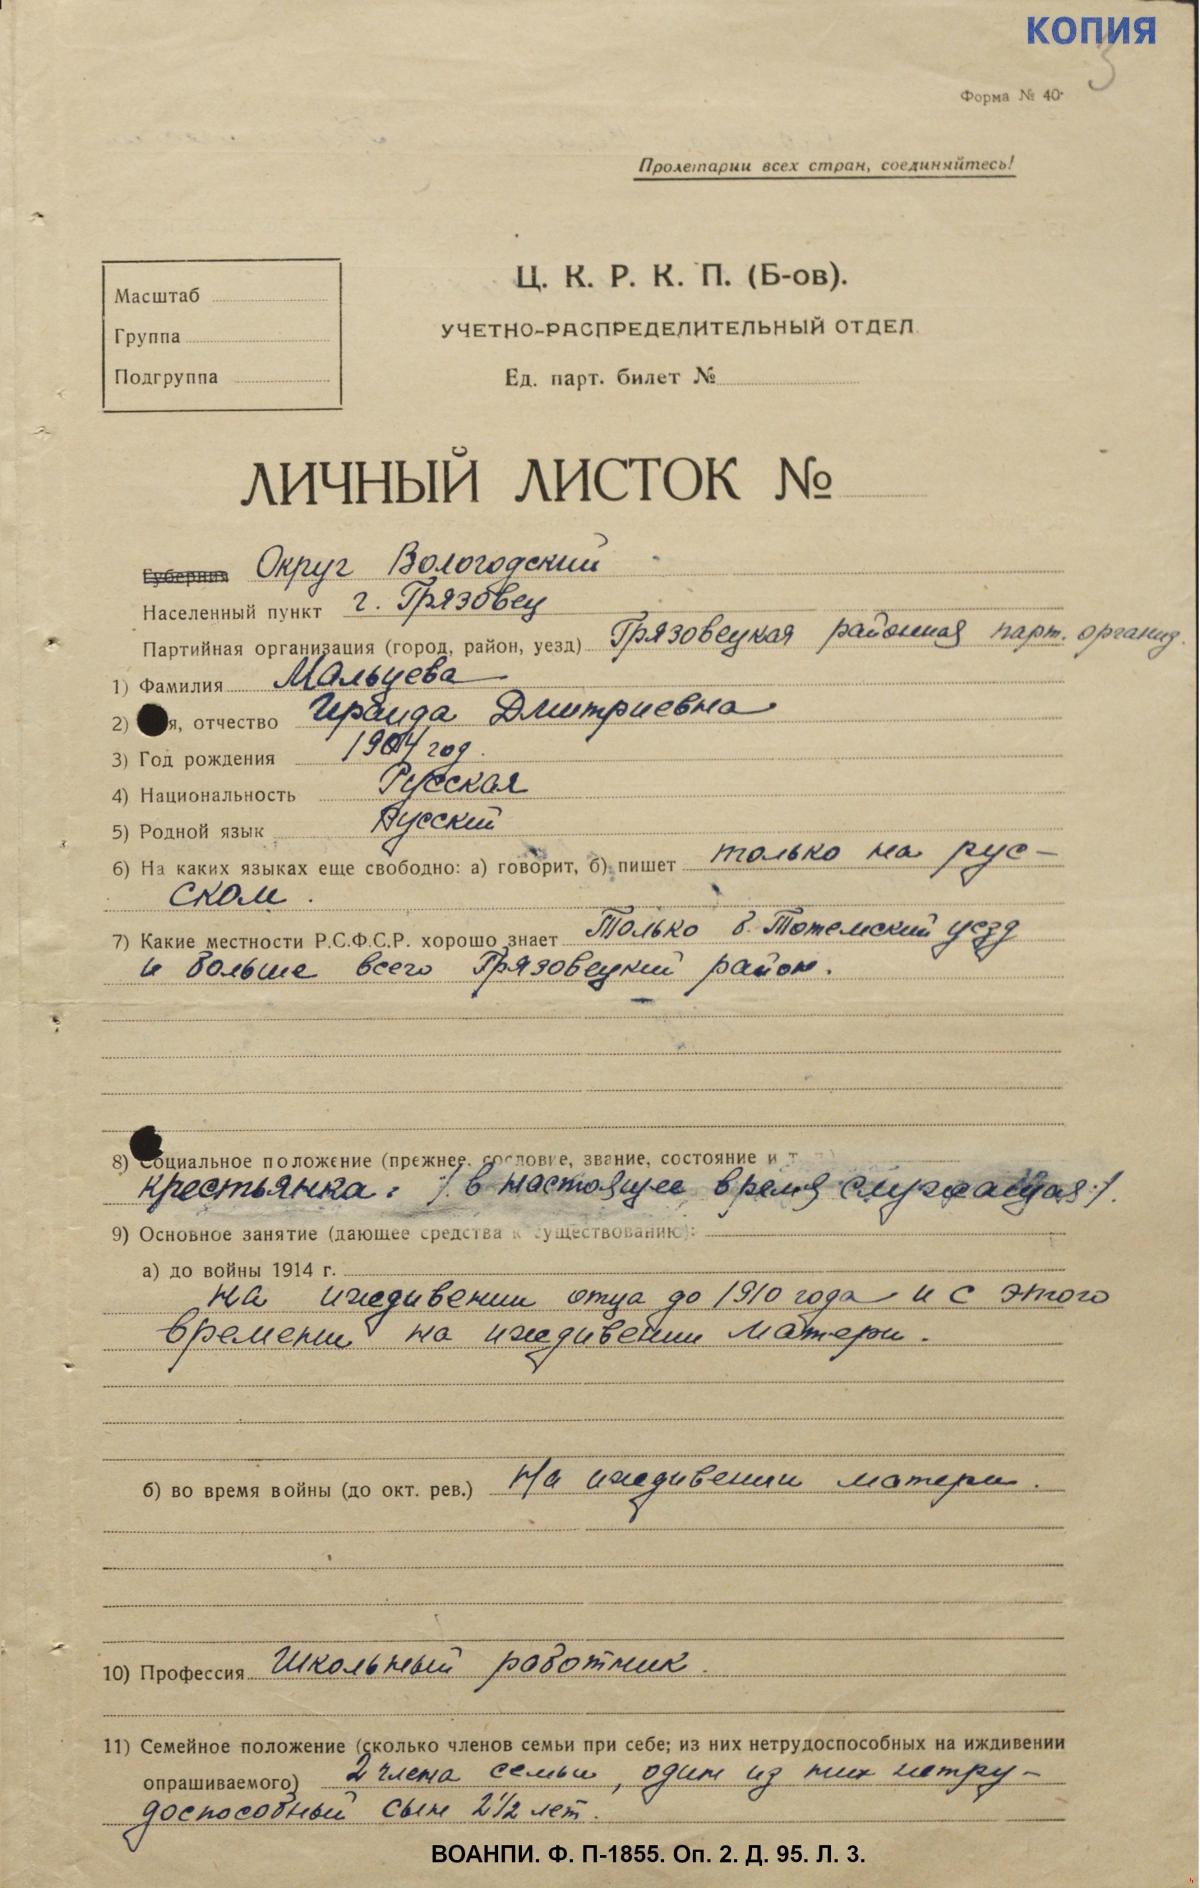 КОПИЯ
3
Форма № 40
Пролетарии всех стран, соединяйтесь!
Масштаб
Группа
Подгруппа
Ц. К. Р. К. П. (Б-ов).
УЧЕТНО-РАСПРЕДЕЛИТЕЛЬНЫЙ ОТДЕЛ
Ед. парт. билет №
ЛИЧНЫЙ ЛИСТОК №
Губерния Округ Вологодский
Населенный пункт г. Грязовец
Партийная организация (город, район, уезд) Грязовецкая районная парт. организ.
1) Фамилия Мальцева
2) я, отчество Ираида Дмитриевна
3) Год рождения 1904 год.
4) Национальность Русская
5) Родной язык Русский
6) На каких языках еще свободно: а) говорит, б) пишет только на рус-
ском.
7) Какие местности Р.С.Ф.С.Р. хорошо знает Только б. Тотемский уезд
и больше всего Грязовецкий район.
8) Социальное положение (прежнее, сословие, звание, состояние и т.
крестьянка. /в настоящее время служащая/.
9) Основное занятие (дающее средства к существованию):
а) до войны 1914 г.
На иждивении отца до 1910 года и с этого
времени на иждивении матери.
б) во время войны (до окт. рев.) На иждивении матери.
10) Профессия Школьный работник.
11) Семейное положение (сколько членов семьи при себе; из них нетрудоспособных на иждивении
опрашиваемого) 2 члена семьи, один из них нетру-
доспособный сын 2 1/2 лет.
ВОАНПИ. Ф. П-1855. Оп. 2. Д. 95. Л. 3.